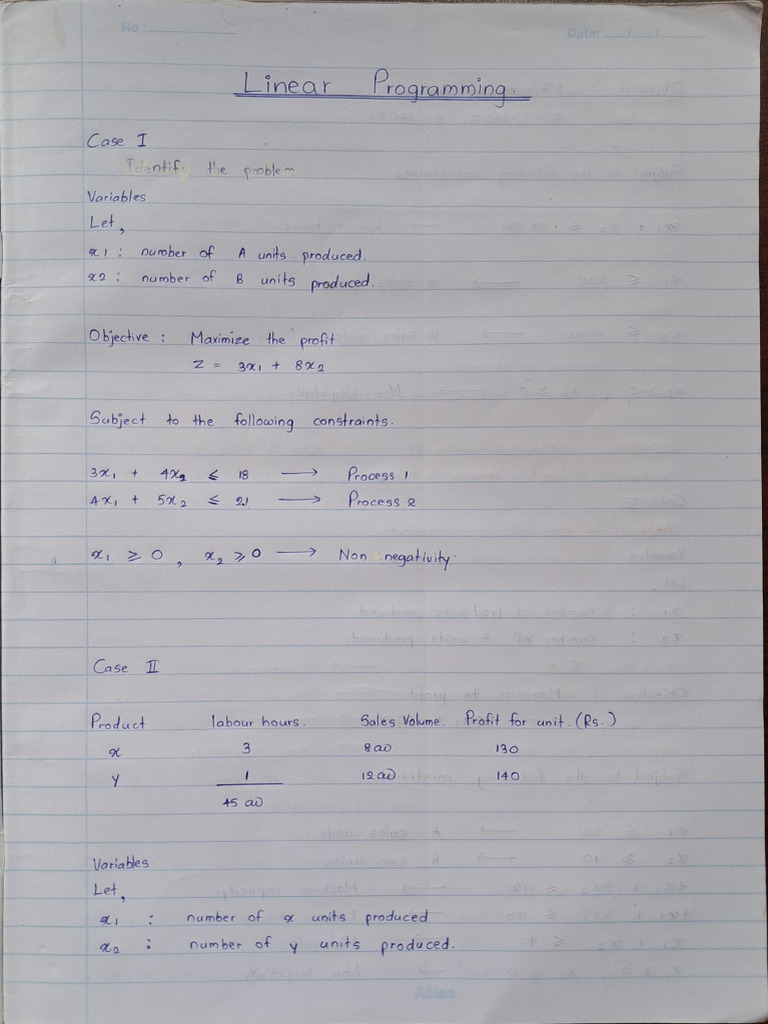 No : 
Date: / /
Linear Programming
Case I
Identify the problem
Variables
Let,
x1 : number of A units produced.
x2 : number of B units produced.
Objective : Maximize the profit
Z = 3x₁ + 8x₂
Subject to the following constraints.
3x₁ + 4x₂ ≤ 18 → Process 1
4x₁ + 5x₂ ≤ 21 → Process 2
x₁ ≥ 0 , x₂ ≥ 0 → Non negativity.
Case II
Product labour hours. Sales Volume. Profit for unit. (Rs.)
x 3 800 130
y 1 1200 140
4500
Variables
Let,
x₁ : number of x units produced
x₂ : number of y units produced.
Atlas